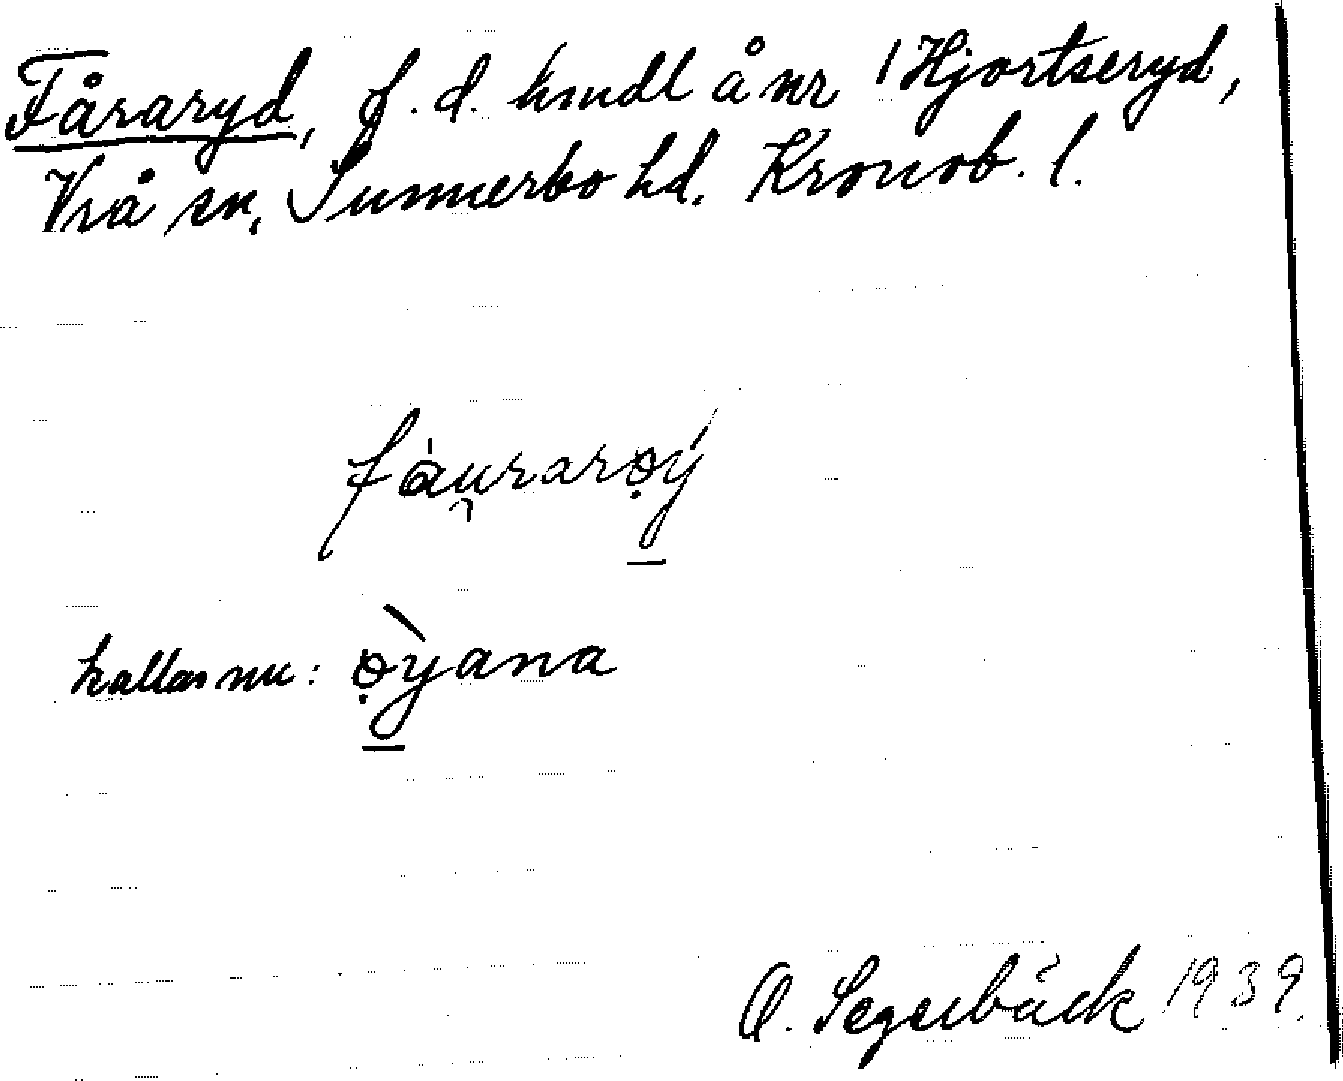 Fåraryd, f. d. hmdl å nr 1 Hjortseryd,
Vrå sn, Sunnerbo hd. Kronob. l.
fàu̯rarọý
kallas nu: ọ̀yana
O. Segerbäck 1939.